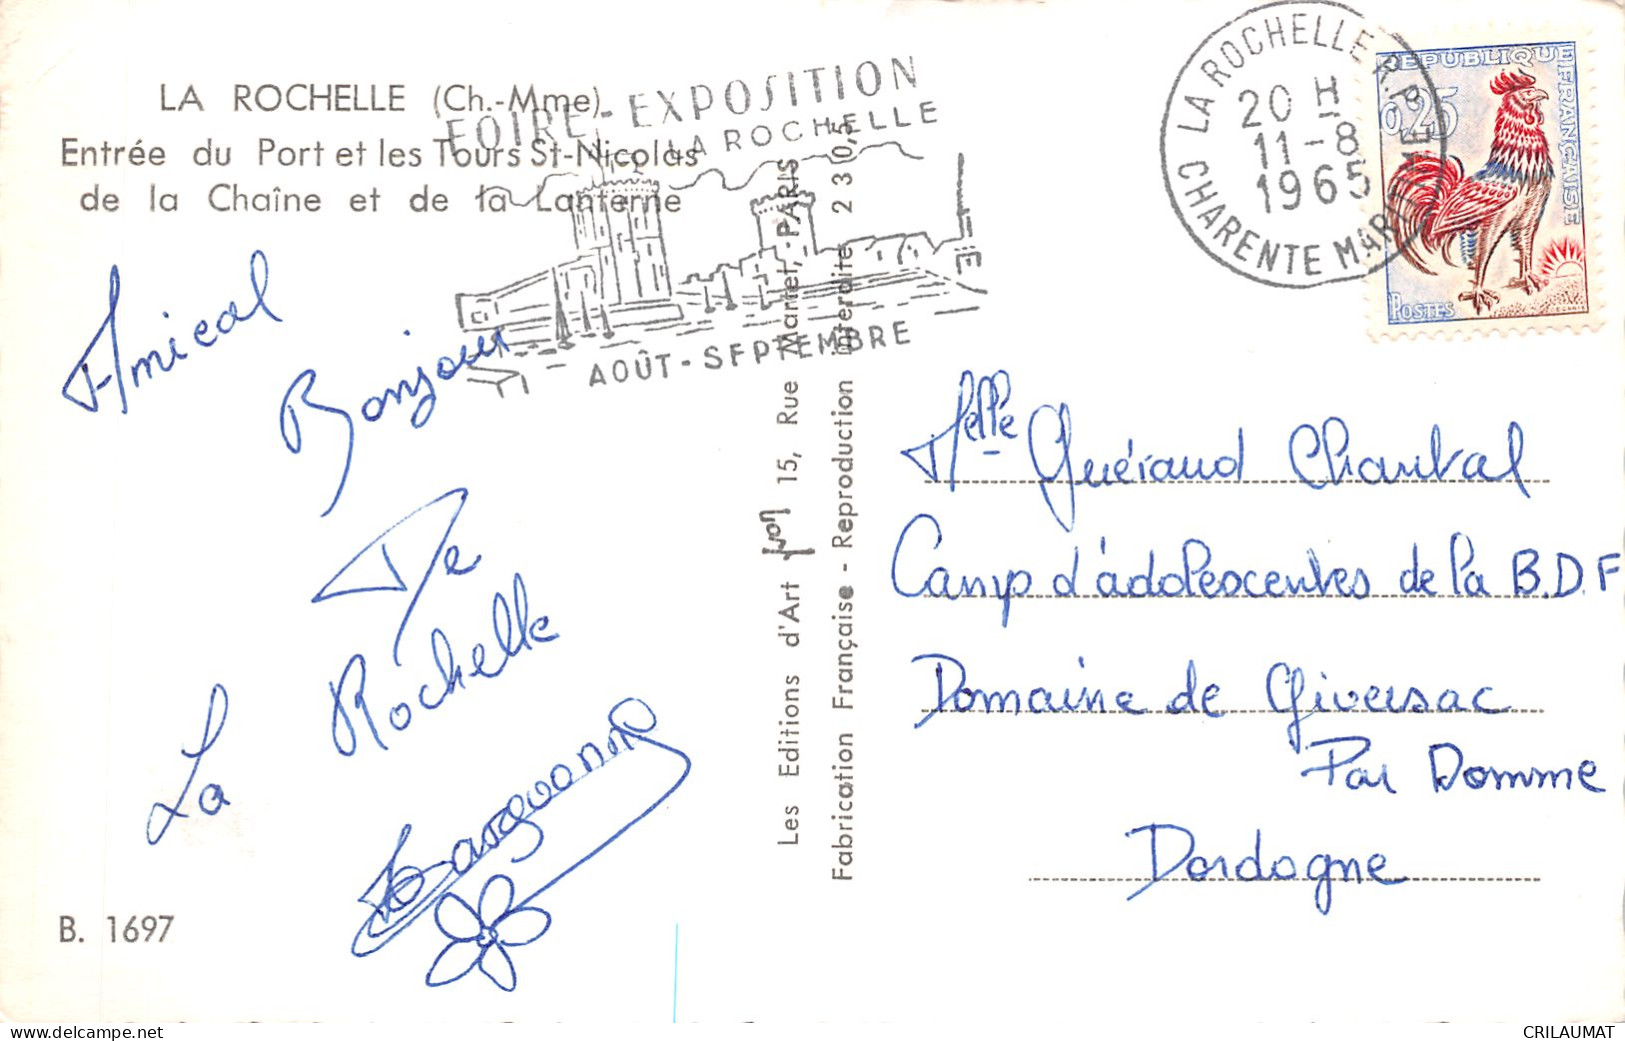 LA ROCHELLE (Ch.-Mme)
Entrée du Port et les Tours St-Nicolas
de la Chaîne et de la Lanterne
FOIRE-EXPOSITION
LA ROCHELLE
AOÛT-SEPTEMBRE
LA ROCHELLE R.P.
20 H
11-8
1965
CHARENTE MARITIME
REPUBLIQUE FRANÇAISE
0,25
POSTES
Amical
Bonjour
De
La Rochelle
B. 1697
Les Editions d'Art Yvon 15, Rue Martel, PARIS
Fabrication Française - Reproduction interdite 2 3 0,5
Melle Guéraud Chantal
Camp d'adolescentes de la B.D.F
Domaine de Giversac
Par Domme
Dordogne
www.delcampe.net
CRILAUMAT